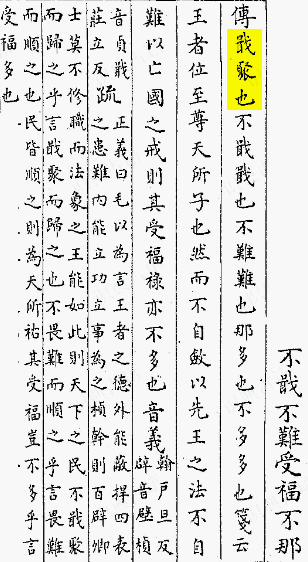 不戢不難受福不那
傳戢聚也不戢戢也不難難也那多也不多多也箋云
王者位至尊天所子也然而不自斂以先王之法不自
難以亡國之戒則其受福祿亦不多也音義翰戶旦反
辟音璧楨
音貞戢
莊立反疏正義曰毛以為言王者之德外能蔽捍四表
之患難內能立功立事為之楨幹則百辟卿
士莫不修職而法象之王能如此則天下之民不戢聚
而歸之乎言戢聚而歸之也不畏難而順之乎言畏難
而順之也民皆順之則為天所祐其受福豈不多乎言
受福多也